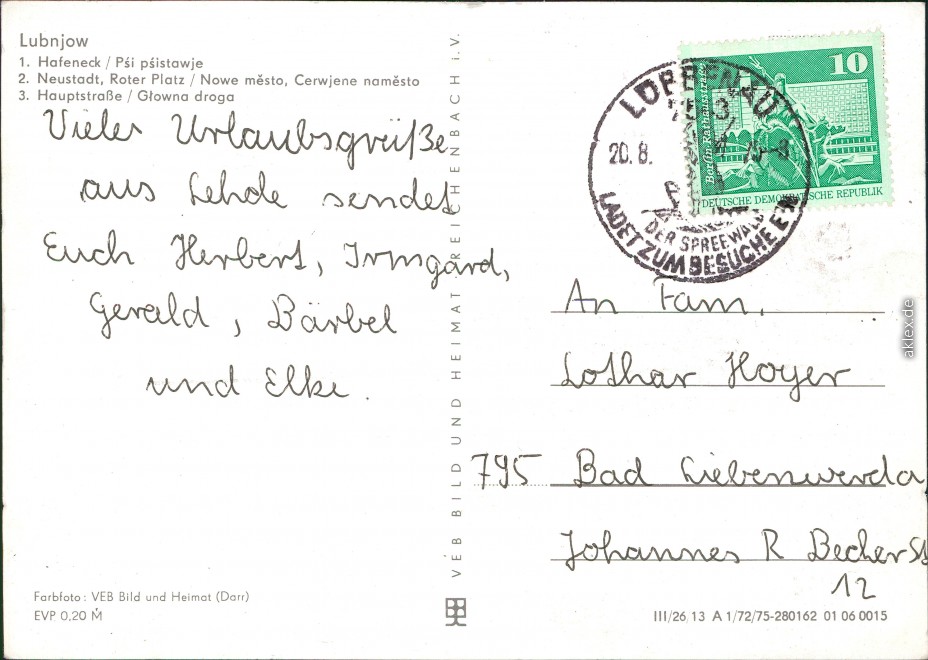 Lubnjow
1. Hafeneck / Pśi pśistawje
2. Neustadt, Roter Platz / Nowe město, Cerwjene naměsto
3. Hauptstraße / Głowna droga
Viele Urlaubsgrüße
aus Lehde sendet
Euch Herbert, Irmgard,
Gerald, Bärbel
und Elke.
Farbfoto: VEB Bild und Heimat (Darr)
EVP 0,20 M
VEB BILD UND HEIMAT REICHENBACH i.V.
LÜBBENAU
20.8.
DER SPREEWALD
LADET ZUM BESUCHE EIN
10
Berlin Rathausstraße
DEUTSCHE DEMOKRATISCHE REPUBLIK
An Fam.
Lothar Hoyer
795 Bad Liebenwerda
Johannes R Becher St
12
III/26,13 A 1/72/75-280162 01 06 0015
aklex.de